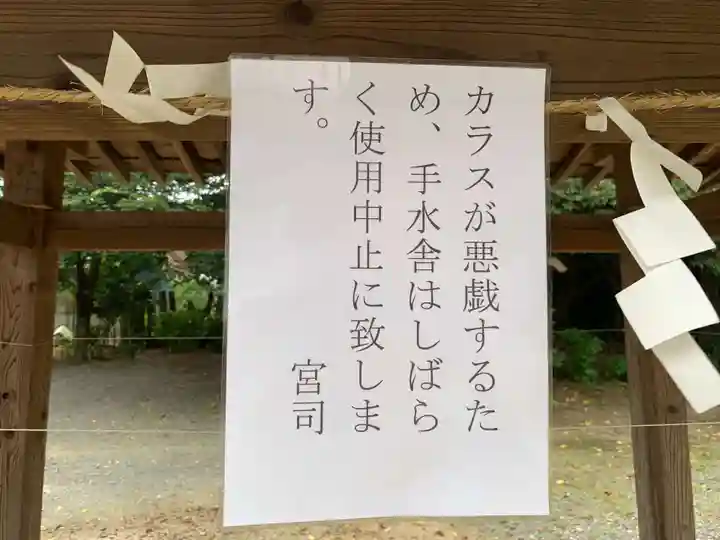 カラスが悪戯するた
め、手水舎はしばら
く使用中止に致しま
す。
宮司